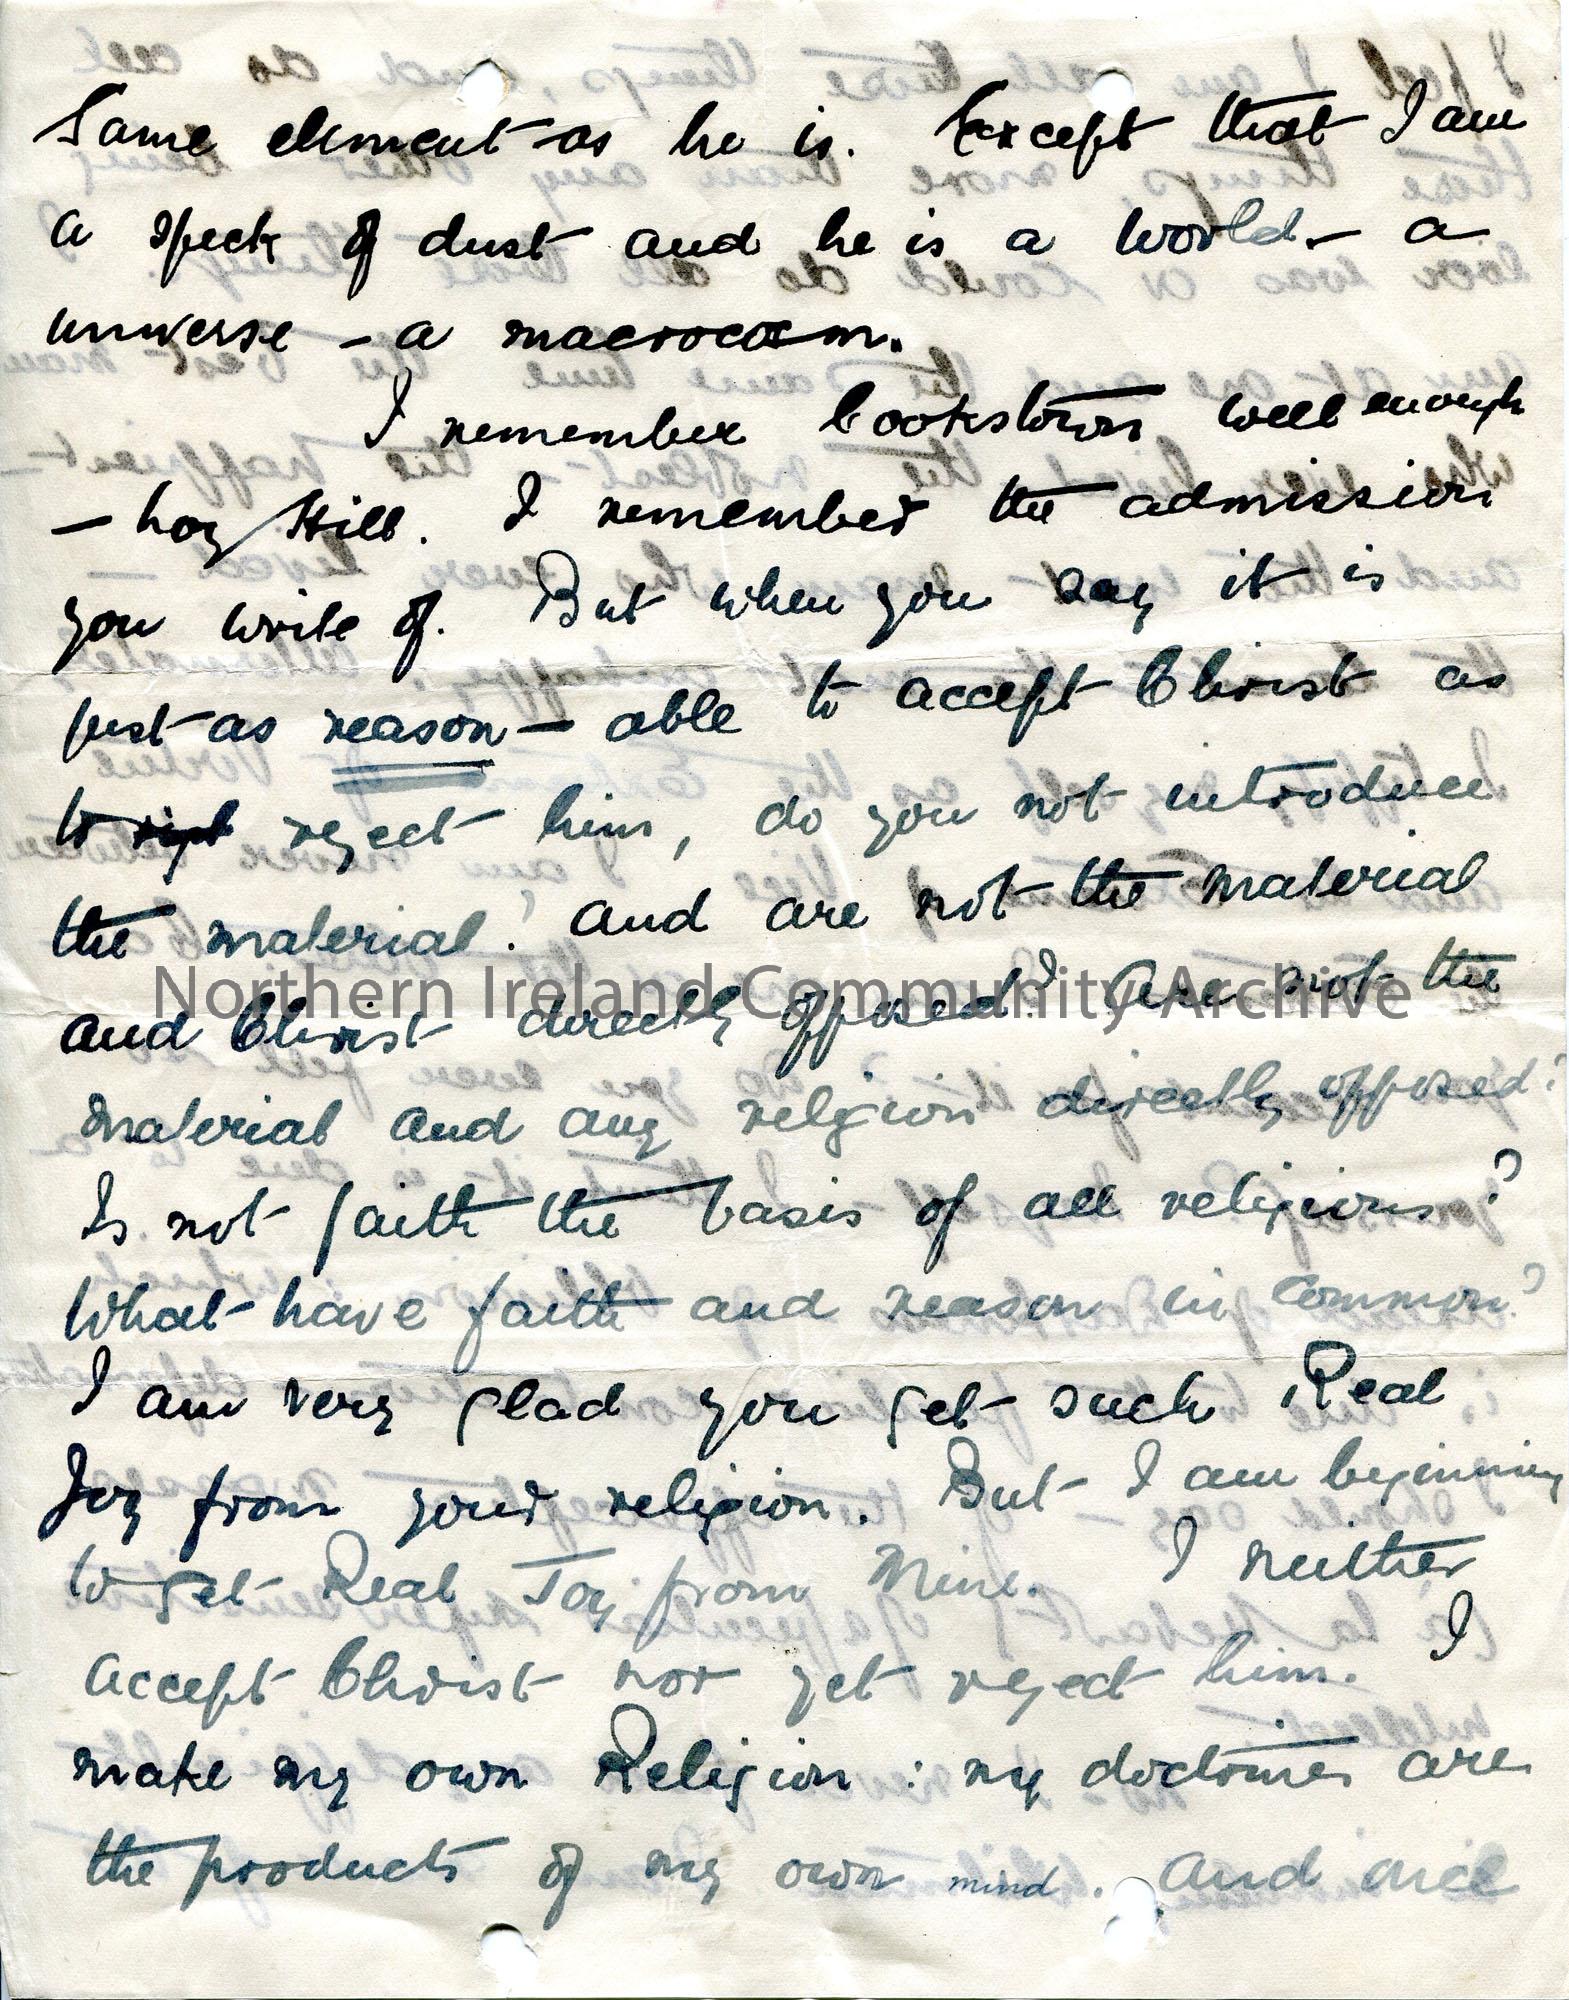 Same element as he is. Except that I am
a speck of dust and he is a world - a
universe - a macrocosm.
I remember Cookstown well enough
- Loy Hill. I remember the admission
you write of. But when you say it is
just as reason - able to accept Christ as
to reject him, do you not introduce
the material? And are not the material
and Christ directly opposed? Are not the
Northern Ireland Community Archive
material and any religion directly opposed?
Is not faith the basis of all religions?
What have faith and reason in common?
I am very glad you get such Real
Joy from your religion. But I am beginning
to get Real Joy from Mine. I neither
accept Christ nor yet reject him. I
make my own Religion : my doctrines are
the products of my own mind. And